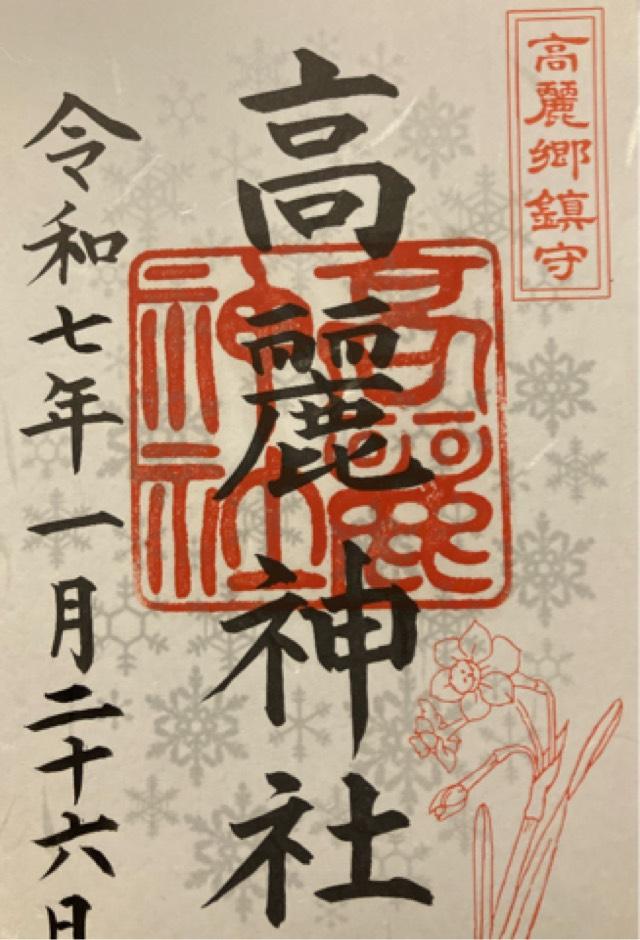 高麗郷鎮守
高麗神社
高麗神社
令和七年一月二十六日